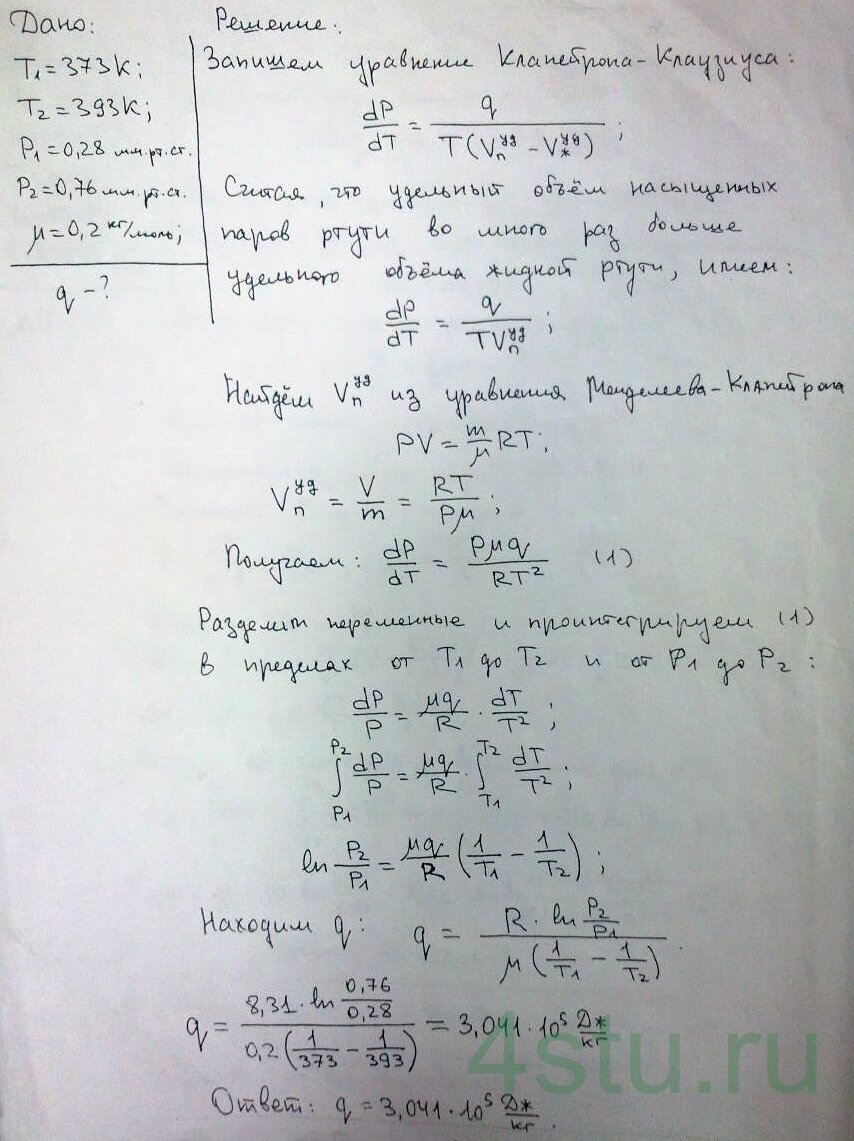 Дано:
T₁=373К;
T₂=393К;
P₁=0,28 мм.рт.ст.
P₂=0,76 мм.рт.ст.
μ=0,2 кг/моль;
q-?
Решение:
Запишем уравнение Клапейрона-Клаузиуса:
dP/dT = q/(T(Vₙ^уд - Vж^уд)) ;
Считая, что удельный объём насыщенных
паров ртути во много раз больше
удельного объёма жидкой ртути, имеем:
dP/dT = q/(TVₙ^уд) ;
Найдём Vₙ^уд из уравнения Менделеева-Клапейрона
PV = m/μ RT;
Vₙ^уд = V/m = RT/(Pμ) ;
Получаем: dP/dT = Pμq/(RT²) (1)
Разделим переменные и проинтегрируем (1)
в пределах от T₁ до T₂ и от P₁ до P₂ :
dP/P = μq/R · dT/T² ;
∫_P₁^P₂ dP/P = μq/R · ∫_T₁^T₂ dT/T² ;
ln P₂/P₁ = μq/R (1/T₁ - 1/T₂) ;
Находим q: q = (R · ln P₂/P₁)/(μ(1/T₁ - 1/T₂)) .
q = (8,31 · ln 0,76/0,28)/(0,2(1/373 - 1/393)) = 3,041 · 10⁵ Дж/кг
Ответ: q = 3,041 · 10⁵ Дж/кг.
4stu.ru